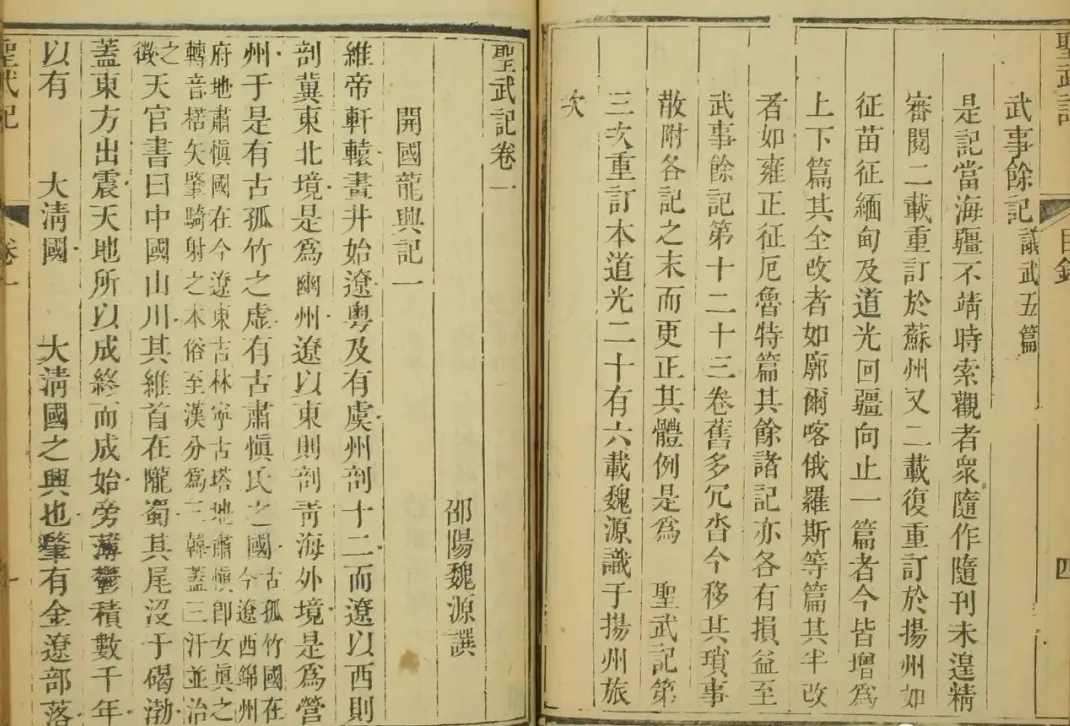 聖武記 目錄 四
武事餘記 議武五篇
是記當海疆不靖時索觀者衆隨作隨刊未遑精
審閱二載重訂於蘇州又二載復重訂於揚州如
征苗征緬甸及道光回疆向止一篇者今皆增爲
上下篇其全改者如廓爾喀俄羅斯等篇其半改
者如雍正征厄魯特篇其餘諸記亦各有損益至
武事餘記第十二十三卷舊多冗沓今移其瑣事
散附各記之末而更正其體例是爲 聖武記第
三次重訂本道光二十有六載魏源識于揚州旅
次
聖武記卷一
邵陽魏源譔
開國龍興記一
維帝軒轅畫井始遼粵及有虞州剖十二而遼以西則
剖冀東北境是爲幽州遼以東則剖靑海外境是爲營
州于是有古孤竹之虛有古肅愼氏之國
古孤竹國在
今遼西錦州
府地肅愼國在今遼東吉林寧古塔地肅愼卽女眞之
轉音楛矢肇騎射之本俗至漢分爲三韓蓋三汗並治
之
徵
天官書曰中國山川其維首在隴蜀其尾沒于碣渤
蓋東方出震天地所以成終而成始旁薄鬱積數千年
以有 大淸國 大淸國之興也肇有金遼部落
聖武記 卷一 一